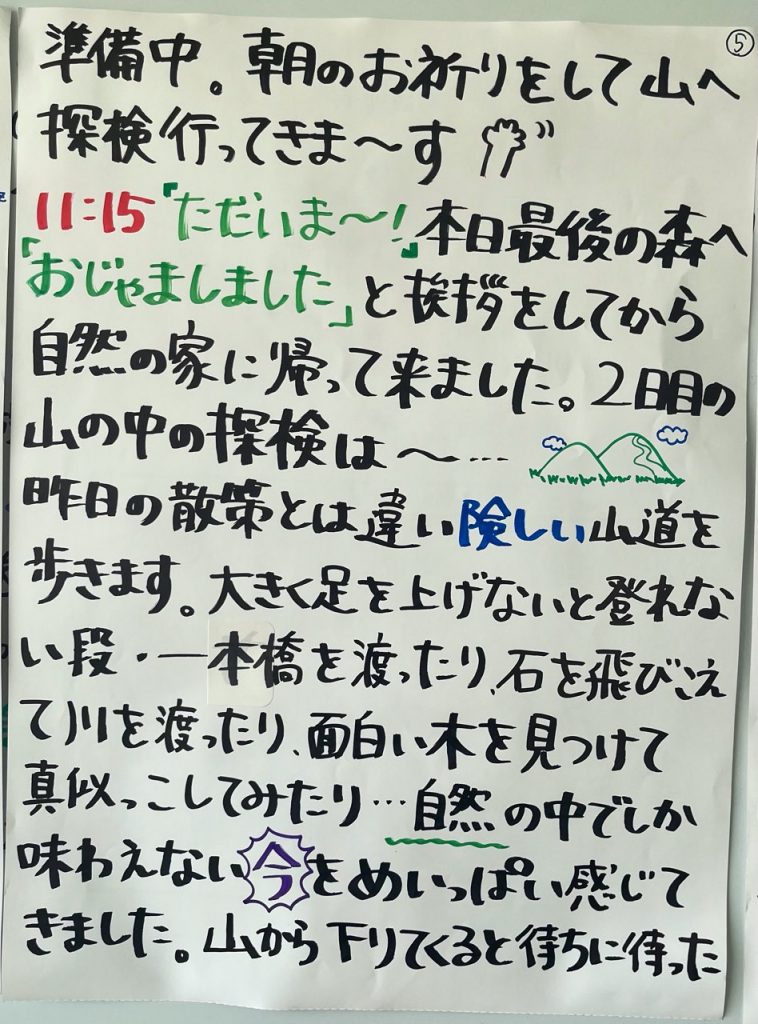 ⑤
準備中。朝のお祈りをして山へ
探検行ってきま〜す
11:15「ただいま〜!」本日最後の森へ
「おじゃましました」と挨拶をしてから
自然の家に帰って来ました。2日目の
山の中の探検は〜…
昨日の散策とは違い険しい山道を
歩きます。大きく足を上げないと登れな
い段・一本橋を渡ったり、石を飛びこえ
て川を渡ったり、面白い木を見つけて
真似っこしてみたり…自然の中でしか
味わえない今をめいっぱい感じて
きました。山から下りてくると待ちに待った